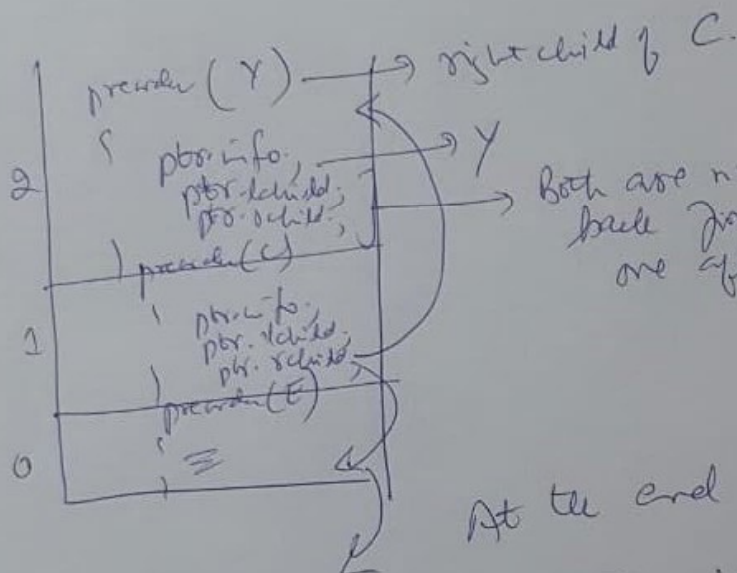 preorder (Y) → right child of C.
2 { ptr.info; → Y
ptr.lchild;
ptr.rchild; → Both are n
back
one
} preorder(C)
1 { ptr.info;
ptr.lchild;
ptr.rchild;
} preorder(E)
0 {
}
At the end